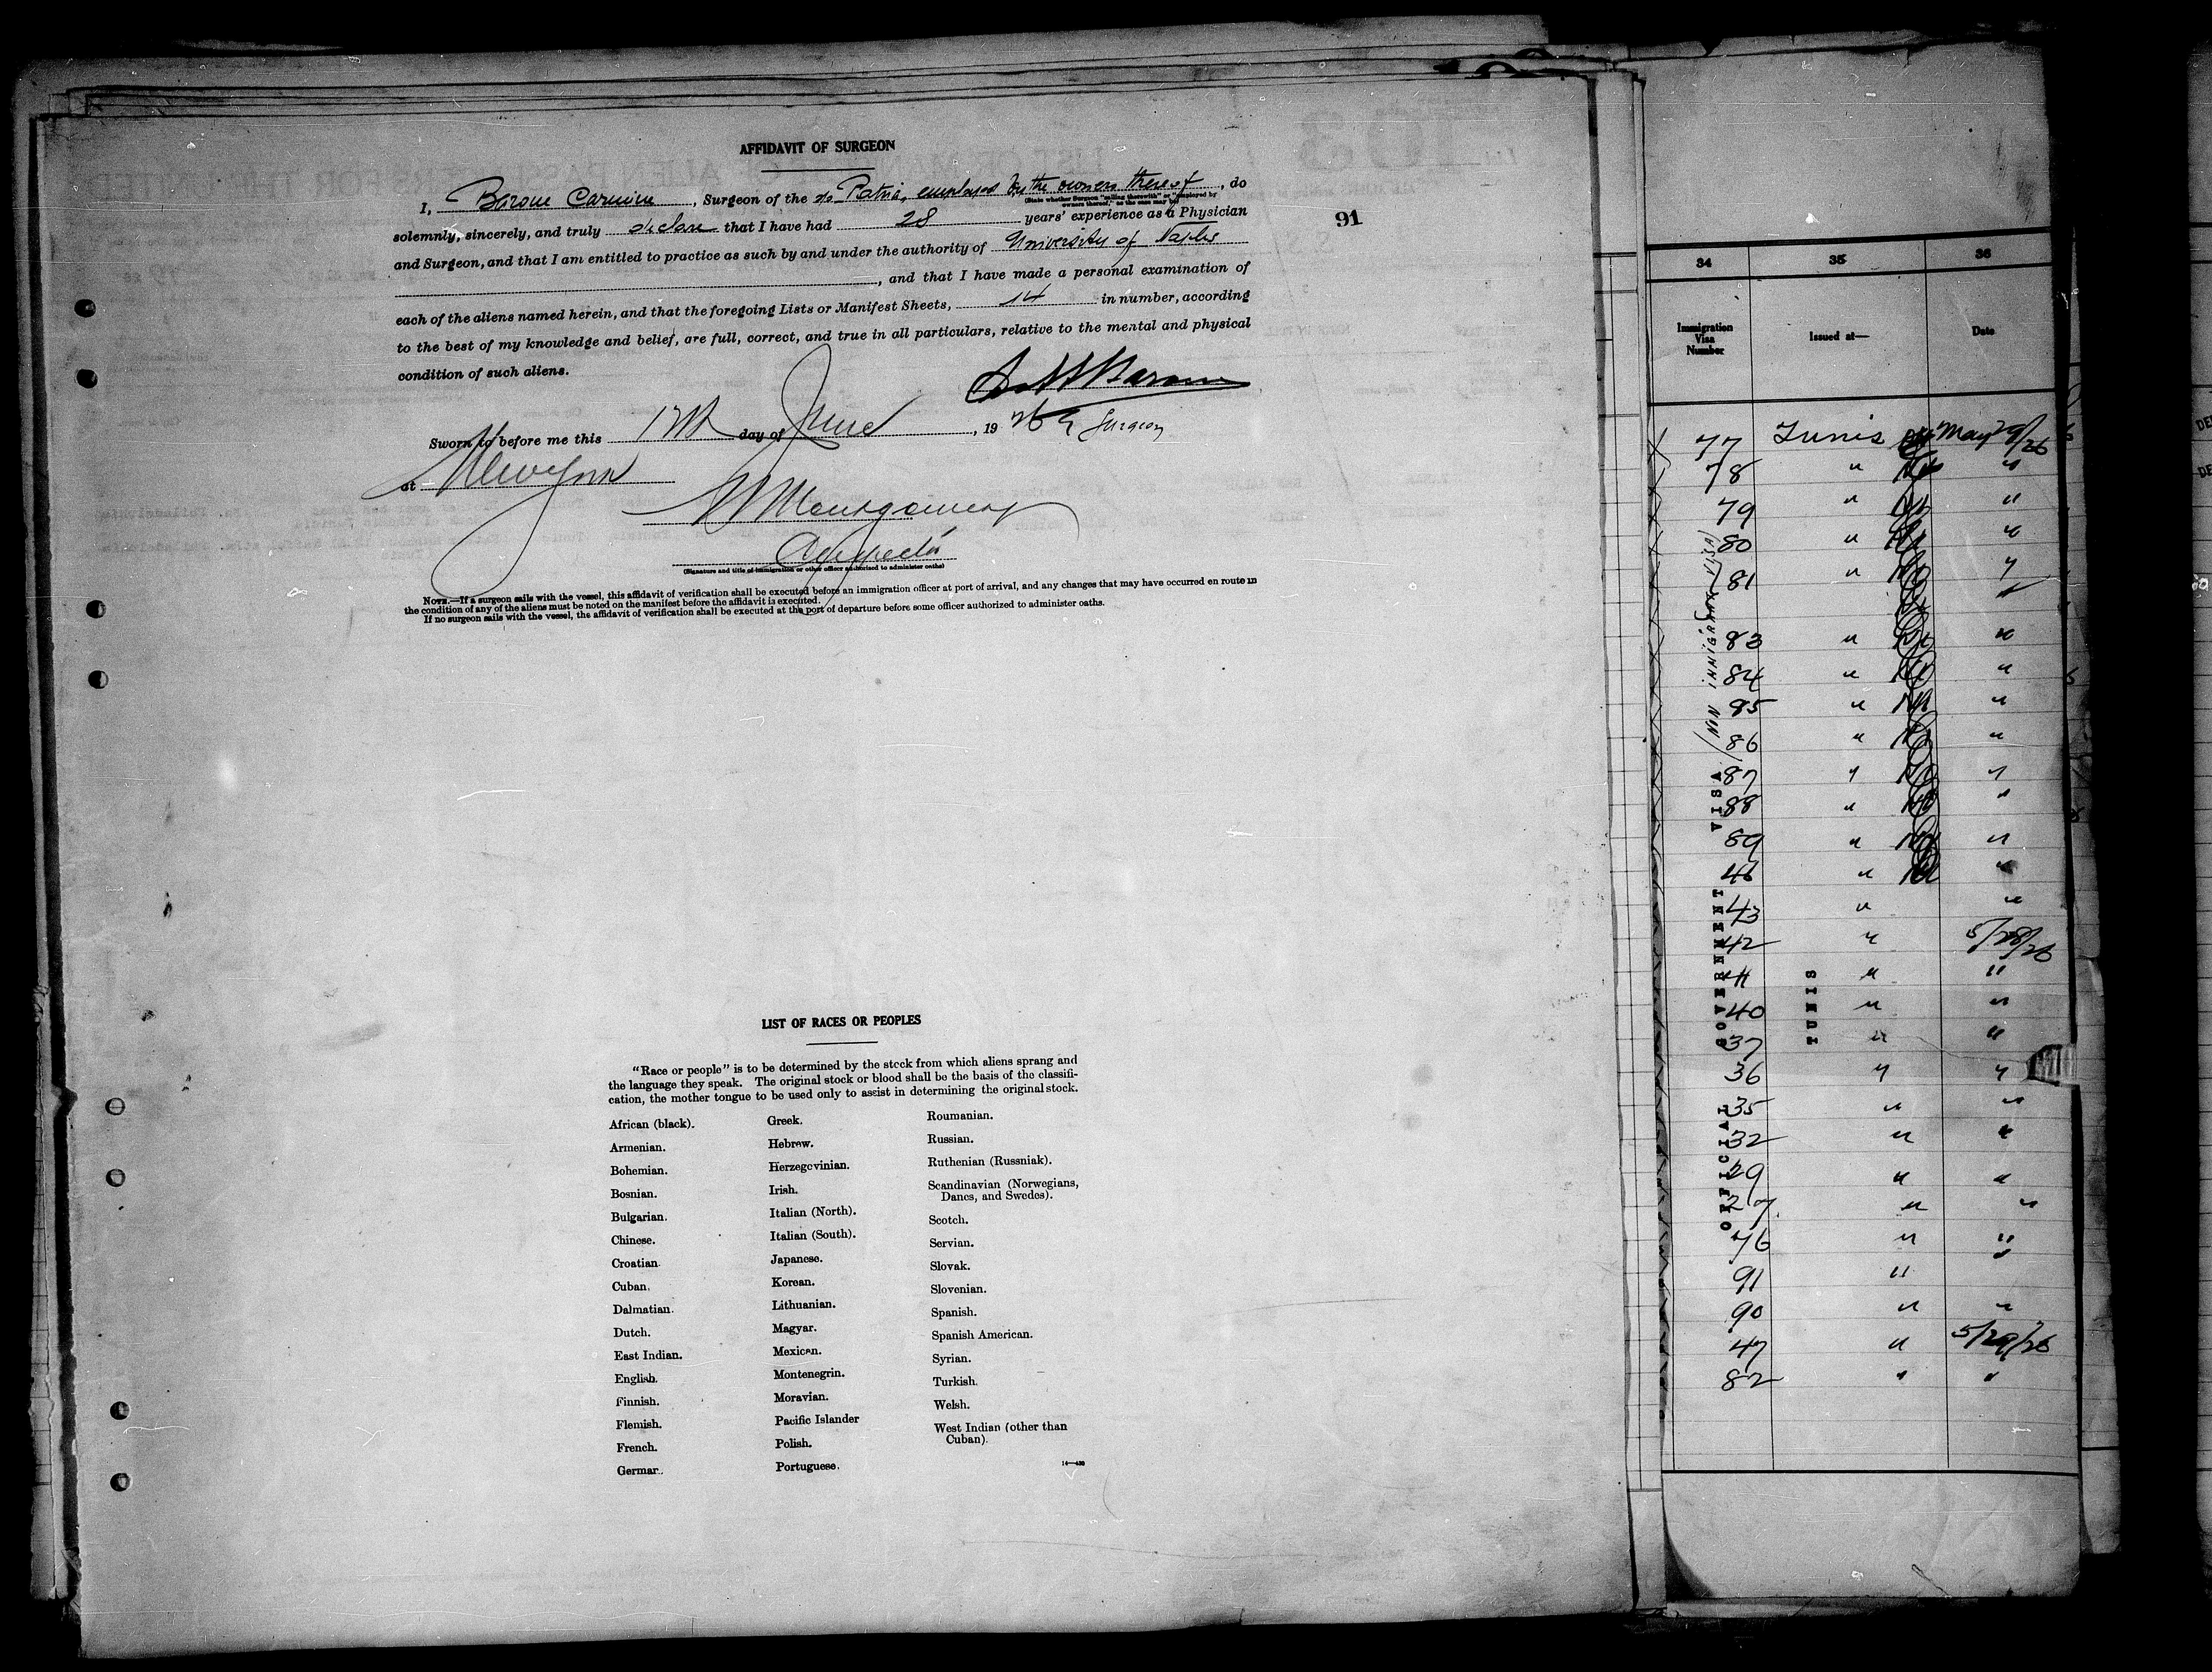 AFFIDAVIT OF SURGEON
I, Barone Carmine, Surgeon of the s/s Patria, employed by the owners thereof, do
(State whether Surgeon "sailing therewith" or "employed by
owners thereof," as the case may be)
solemnly, sincerely, and truly declare that I have had 28 years' experience as a Physician
and Surgeon, and that I am entitled to practice as such by and under the authority of University of Naples
, and that I have made a personal examination of
each of the aliens named herein, and that the foregoing Lists or Manifest Sheets, 14 in number, according
to the best of my knowledge and belief, are full, correct, and true in all particulars, relative to the mental and physical
condition of such aliens.
Barone
Surgeon
Sworn to before me this 12th day of June, 1926
at New York
Montgomery
(Signature and title of immigration or other officer authorized to administer oaths)
NOTE.—If a surgeon sails with the vessel, this affidavit of verification shall be executed before an immigration officer at port of arrival, and any changes that may have occurred en route in
the condition of any of the aliens must be noted on the manifest before the affidavit is executed.
If no surgeon sails with the vessel, the affidavit of verification shall be executed at the port of departure before some officer authorized to administer oaths.
91
LIST OF RACES OR PEOPLES
"Race or people" is to be determined by the stock from which aliens sprang and
the language they speak. The original stock or blood shall be the basis of the classifi-
cation, the mother tongue to be used only to assist in determining the original stock.
African (black).
Armenian.
Bohemian.
Bosnian.
Bulgarian.
Chinese.
Croatian.
Cuban.
Dalmatian.
Dutch.
East Indian.
English.
Finnish.
Flemish.
French.
German.
Greek.
Hebrew.
Herzegovinian.
Irish.
Italian (North).
Italian (South).
Japanese.
Korean.
Lithuanian.
Magyar.
Mexican.
Montenegrin.
Moravian.
Pacific Islander
Polish.
Portuguese.
Roumanian.
Russian.
Ruthenian (Russniak).
Scandinavian (Norwegians,
Danes, and Swedes).
Scotch.
Servian.
Slovak.
Slovenian.
Spanish.
Spanish American.
Syrian.
Turkish.
Welsh.
West Indian (other than
Cuban).
34 35 36
Immigration
Visa
Number
Issued at—
Date
77 Tunis May 29/26
78 " "
79 " "
80 " "
81 " "
83 " "
84 " "
85 " "
86 " "
87 " "
88 " "
89 " "
46 " "
43 " "
42 " 5/28/26
41 " "
40 " "
37 " "
36 " "
35 " "
32 " "
29 " "
27 " "
76 " "
91 "
90 " "
47 " 5/29/26
82 " "
(NON IMMIGRANT VISA)
OFFICIAL GOVERNMENT VISA
TUNIS